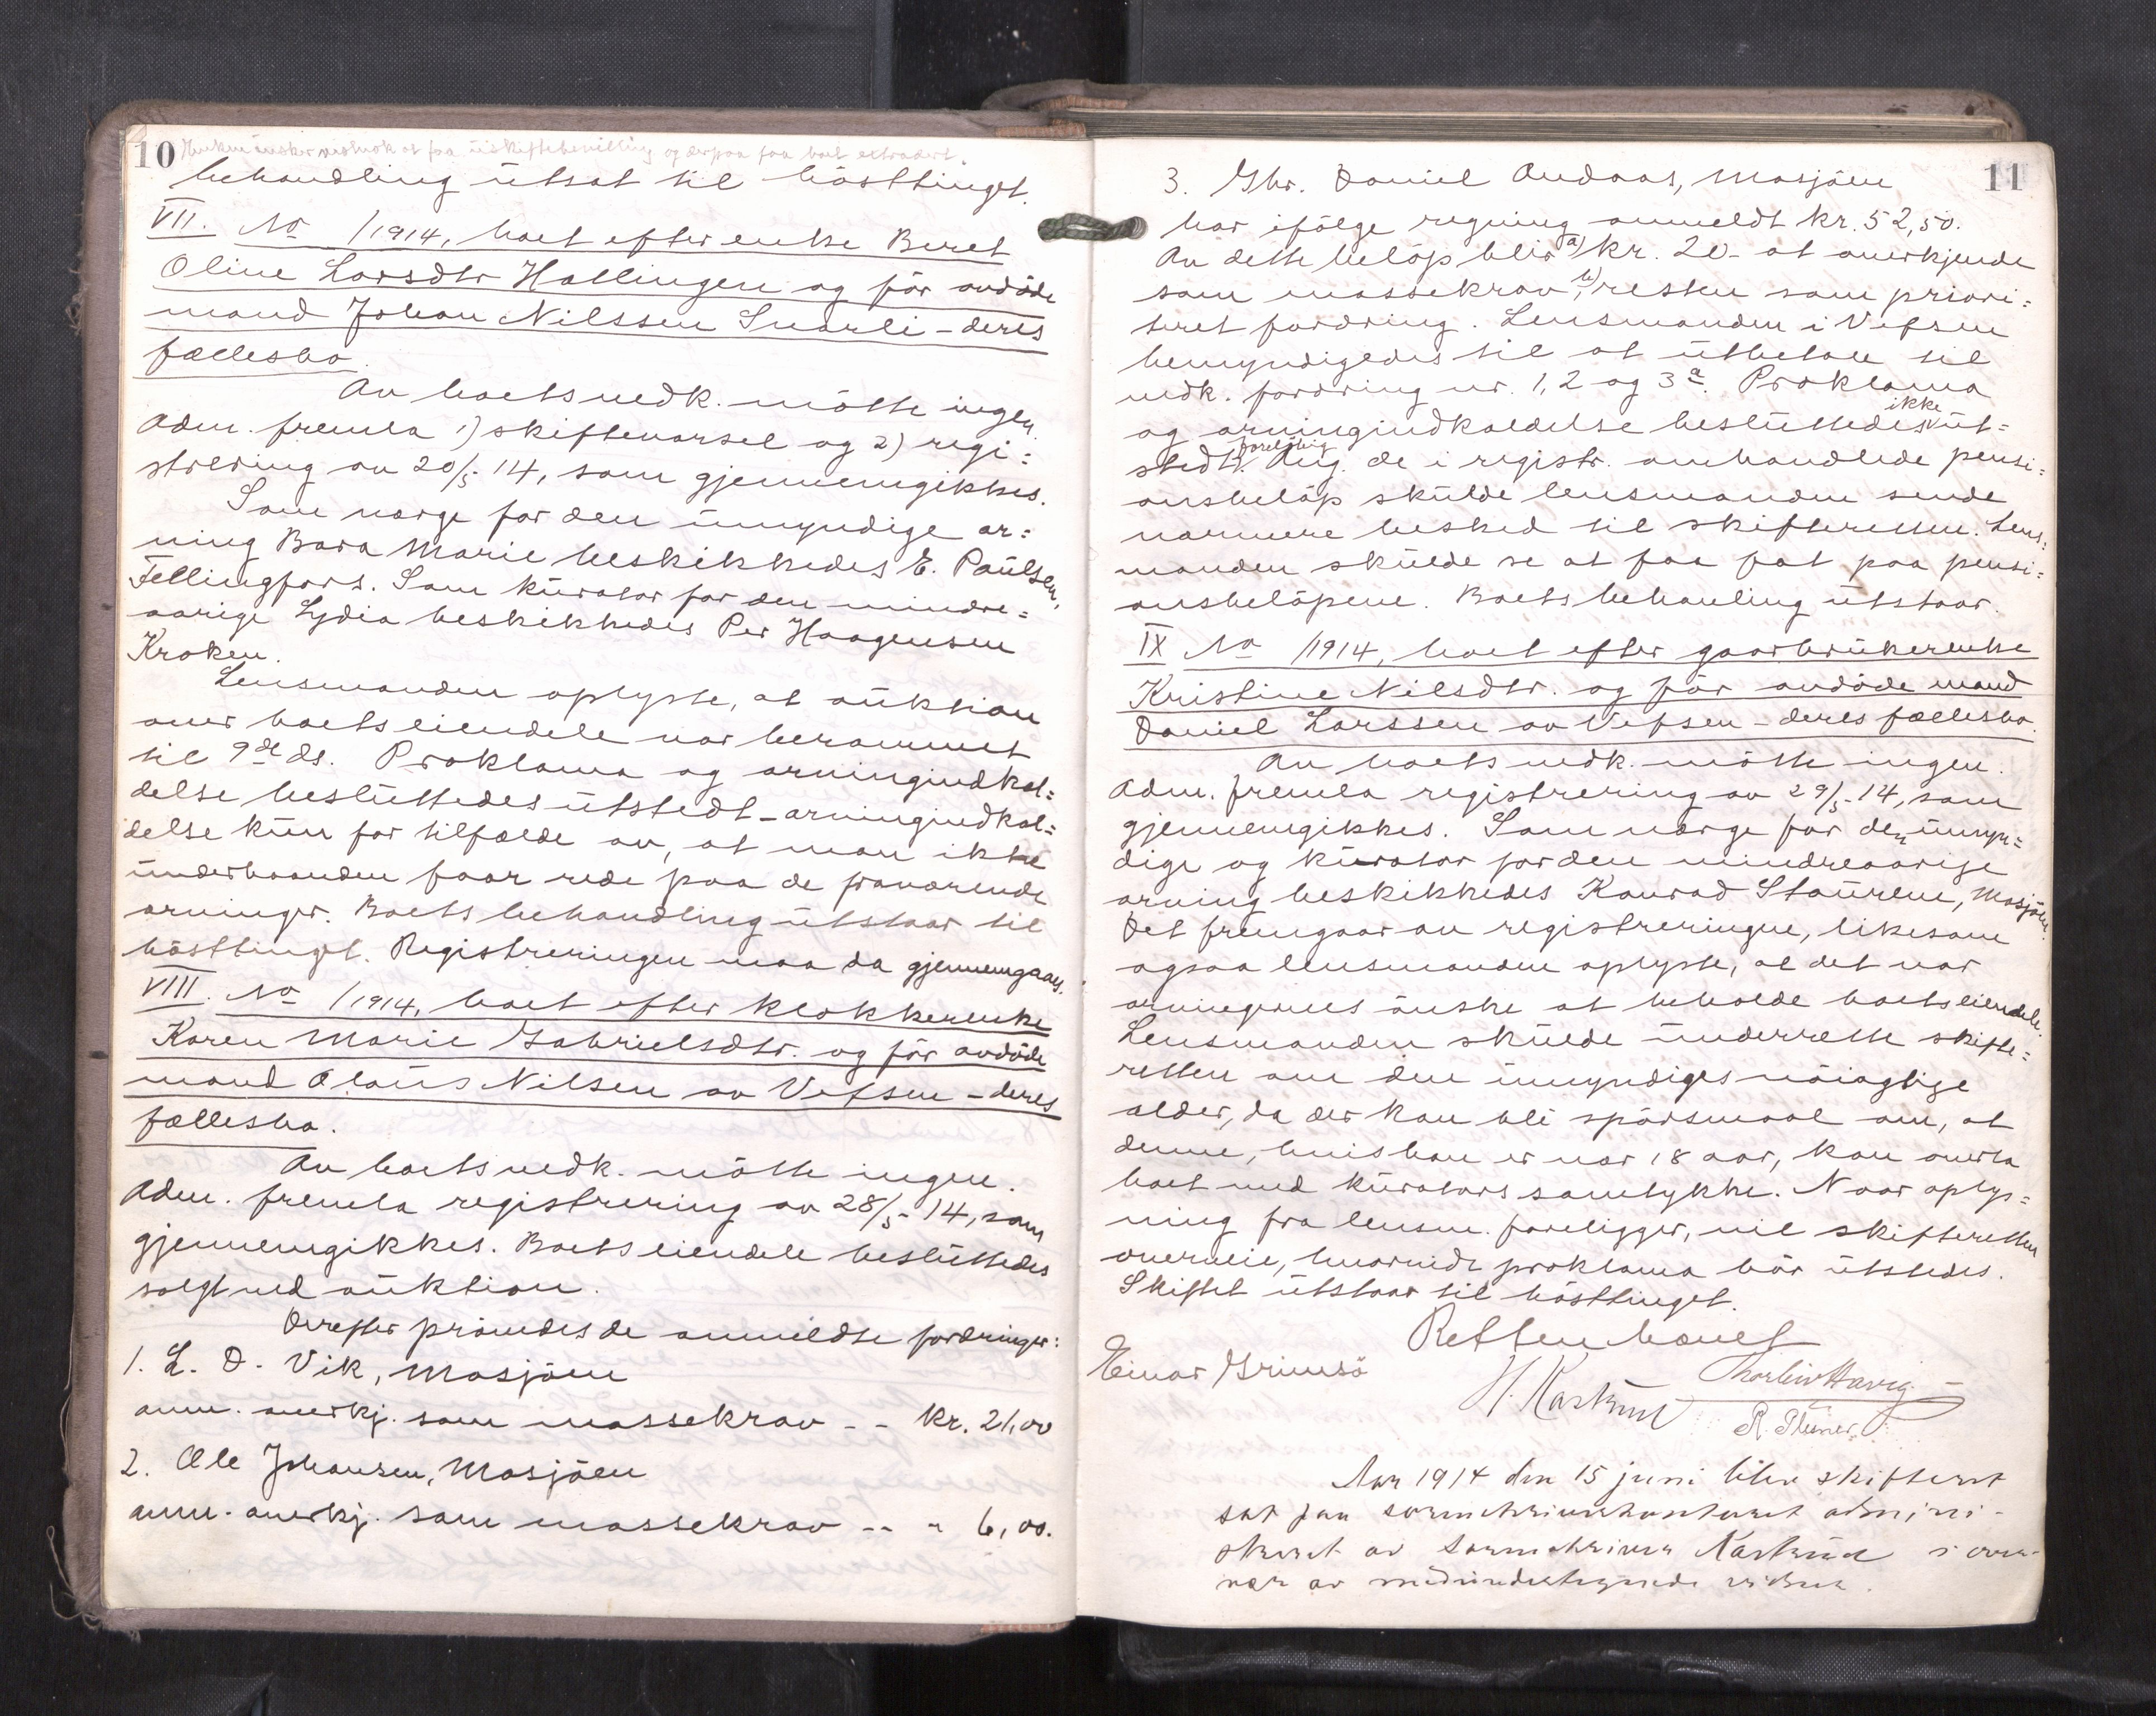 10
behandling utsat til hösttinget.
VII. No /1914, boet efter enke Beret
Oline Larsdtr Hallingen og för avdöde
mand Johan Nilssen Svarli - deres
fællesbo.
Av boets vedk. mötte ingen.
Adm. fremla 1) skiftevarsel og 2) regi=
strering av 20/5-14, som gjennemgikkes.
Som verge for den umyndige ar=
ving Bara Marie beskikkedes E. Paulsen,
Fellingfors. Som kurator for den mindre=
aarige Lydia beskikkedes Per Haagensen
Kroken.
Lensmanden oplyste, at auktion
over boets eiendele var berammet
til 9de ds. Proklama og arvingindkal=
delse besluttedes utstedt - arvingindkal=
delse kun for tilfælde av, at man ikke
underhaanden faar rede paa de fraværende
arvinger. Boets behandling utstaar til
hösttinget. Registreringen maa da gjennemgaaes.
VIII. No /1914, boet efter klokkerenke
Karen Marie Gabrielsdtr. og för avdöde
mand Olaus Nilsen av Vefsen - deres
fællesbo.
Av boets vedk. mötte ingen.
Adm. fremla registrering av 28/5-14, som
gjennemgikkes. Boets eiendele besluttedes
solgt ved auktion.
Derefter prövedes de anmeldte fordringer:
1. L. D. Vik, Mosjöen
anm. anerkj. som massekrav - - kr. 21,00
2. Ole Johansen, Mosjöen
anm. anerkj. som massekrav - - " 6,00.
11
3. Ghr. Daniel Andaas, Mosjöen
har ifölge regning anmeldt kr. 52,50.
Av dette belöp blir a) kr. 20- at anerkjende
som massekrav, b) resten som priori=
teret fordring. Lensmanden i Vefsen
bemyndigedes til at utbetale til
vedk. fordring nr. 1, 2 og 3a. Proklama
og arvingindkaldelse besluttedes ikke ut=
stedt foreløbig. Ang. de i registr. omhandlede pensi=
onsbeløp skulde lensmanden sende
nærmere besked til skifteretten. Lens=
manden skulde se at faa fat paa pensi=
onsbelöpene. Boets behanling utstaar.
IX No /1914, boet efter gaarbrukerenke
Kristine Nilsdtr. og för avdöde mand
Daniel Larssen av Vefsen - deres fællesbo.
Av boets vedk. mötte ingen.
Adm. fremla registrering av 29/5-14, som
gjennemgikkes. Som verge for den umyn=
dige og kurator for den mindreaarige
arving beskikkedes Konrad Staurene, Mosjöen.
Det fremgaar av registreringen, likesom
ogsaa lensmanden oplyste, at det var
arvingernes önske at beholde boets eiendele.
Lensmanden skulde underrette skifte=
retten om den umyndiges nöiagtige
alder, da der kan bli spörsmaal om, at
denne, hvis han er nær 18 aar, kan overta
boet med kurators samtykke. Naar oplys=
ning fra lensm. foreligger, vil skifteretten
overveie, hvorvidt proklama bör utstedes.
Skiftet utstaar til hösttinget.
Retten hævet
Einar Grimsö
Thorleiv Havig
Aar 1914 den 15 juni blev skifteret
sat paa sorenskriverkontoret admini-
streret av sorenskriver Kastrud i over-
vær av medundertegnede vidner.